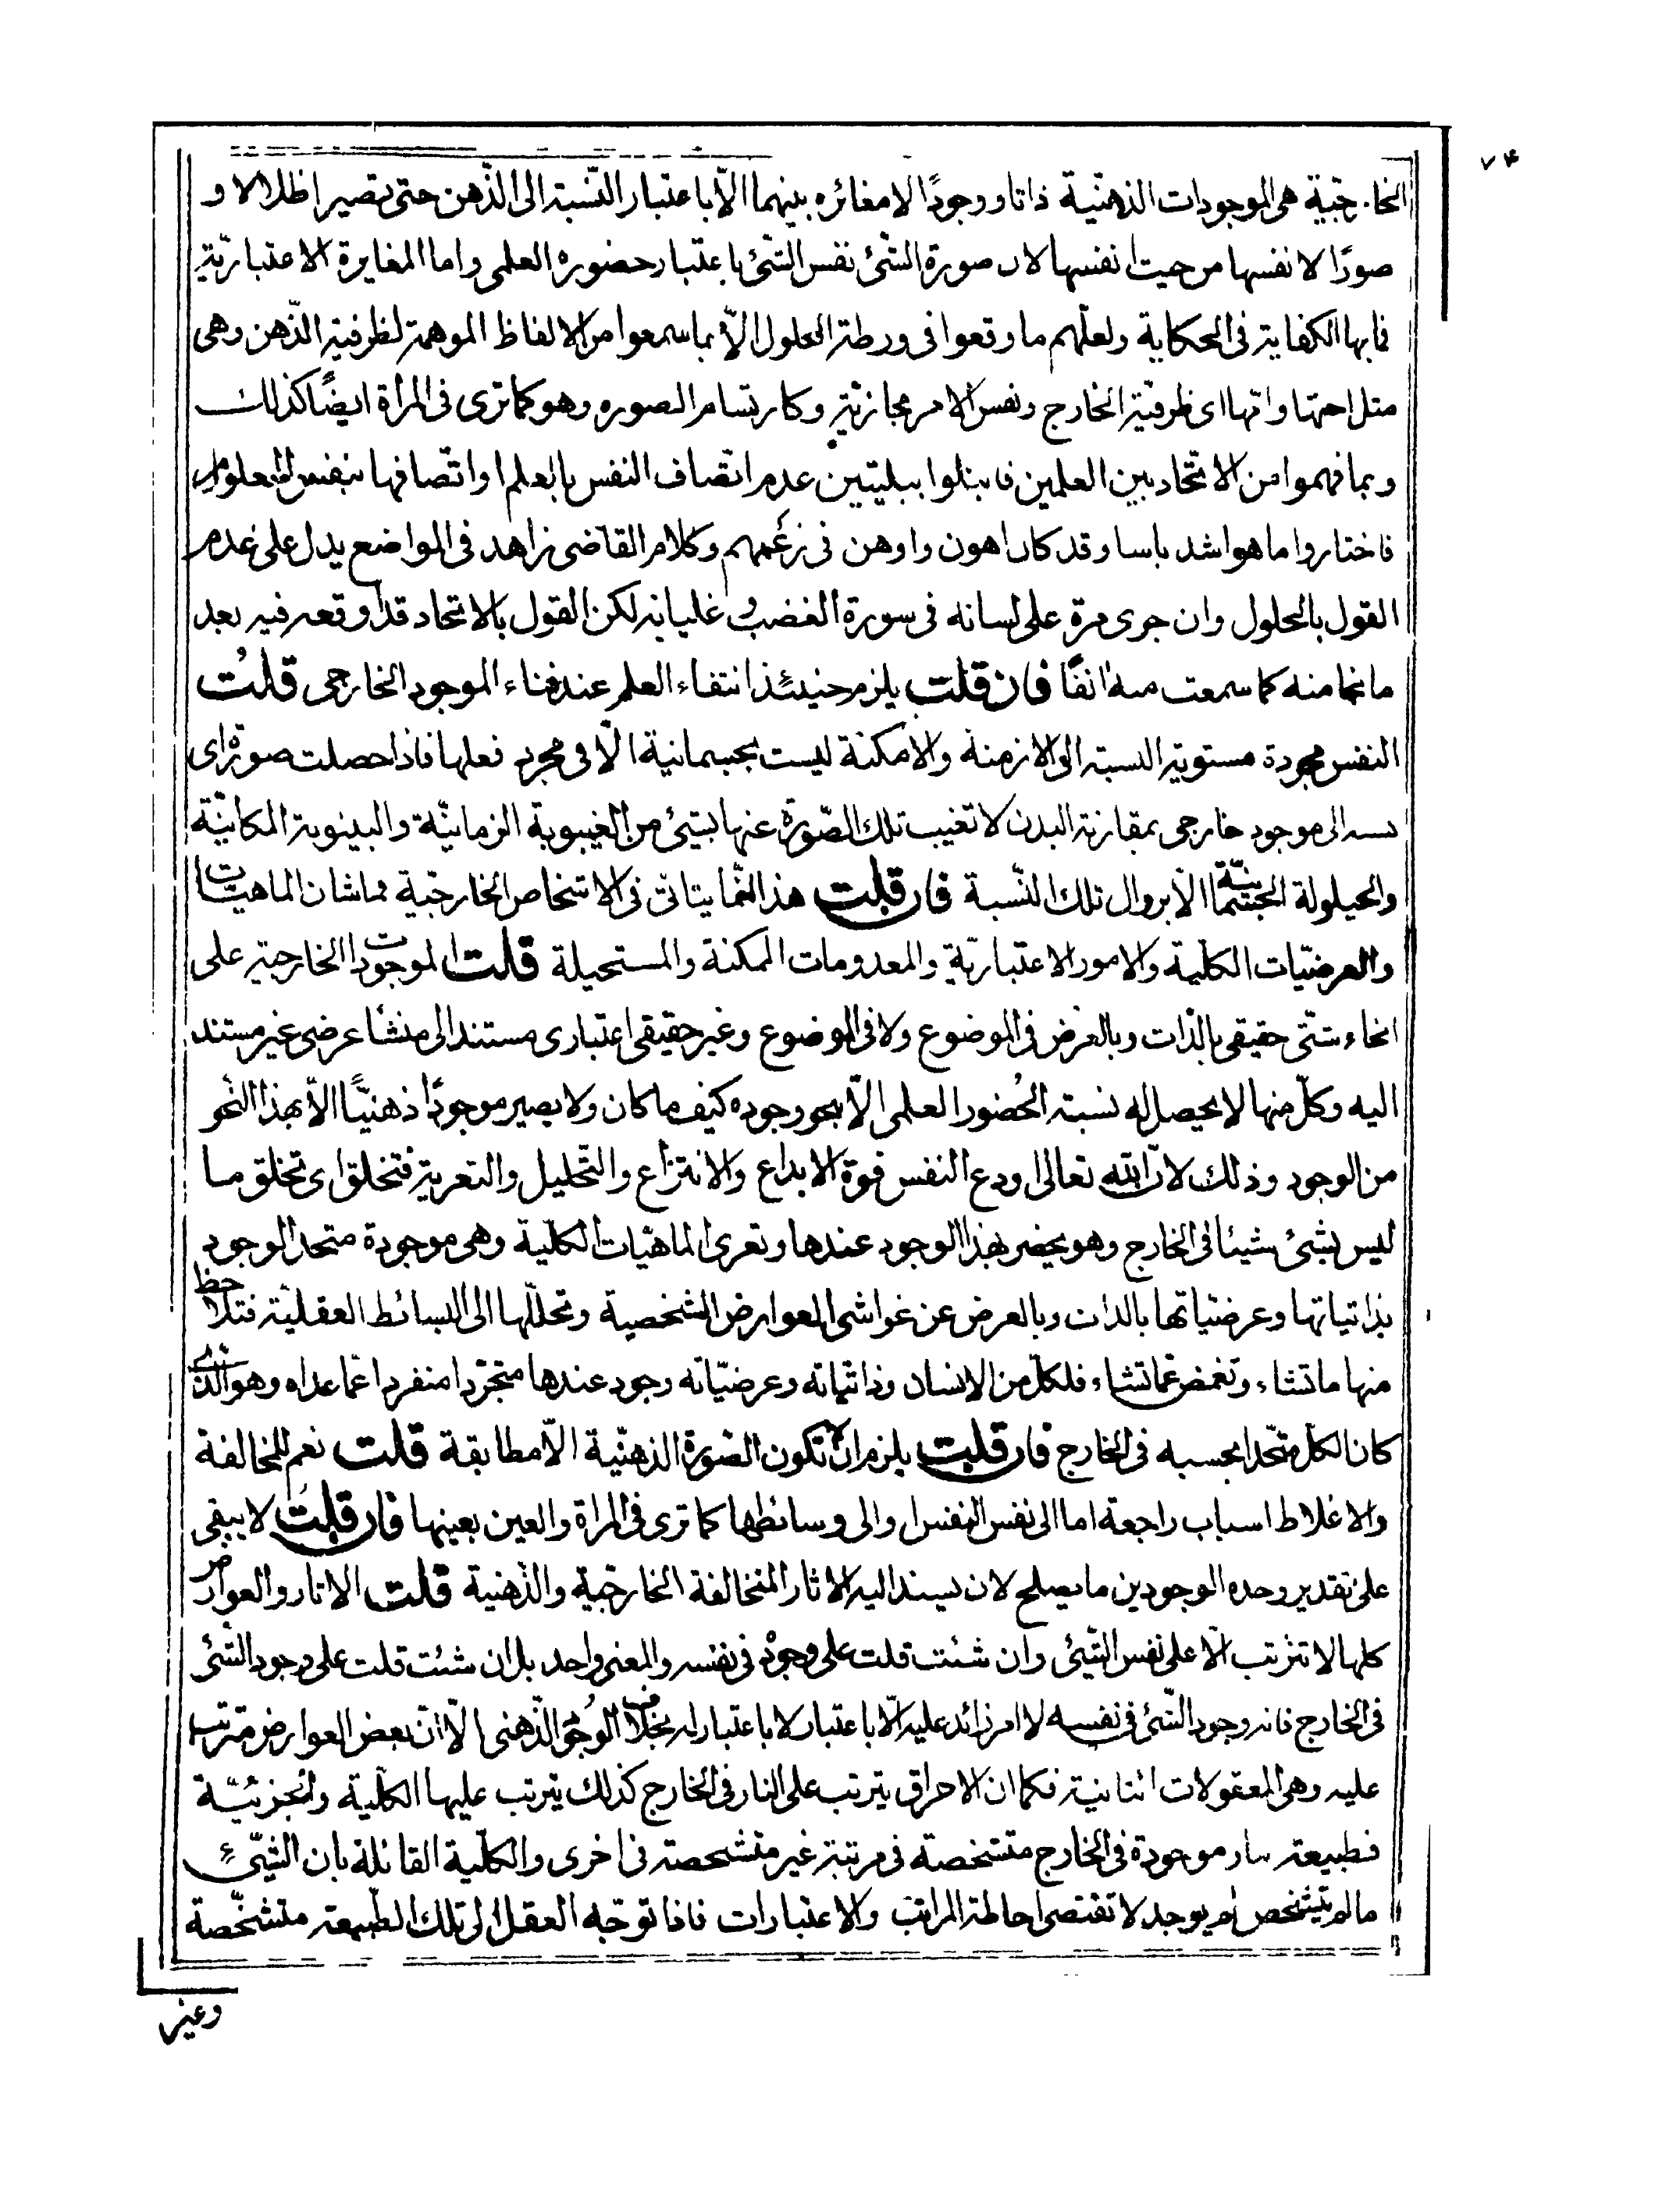 ۷۴
الخارجيّة هى الموجودات الذهنيّة ذاتا ووجودًا لا مغائره بينهما الّا باعتبار النّسبة الى الذّهن حتى تصير اظلالا و
صورًا لا نفسها من حيث انفسها لان صورة الشّئ نفس الشّئ باعتبار حضوره العلمى واما المغايرة الاعتباريّة
فابها الكفاية فى الحكاية ولعلّهم ما وقعوا فى ورطة الحلول الّا بما سمعوا من الالفاظ الموهمة لظرفية الذّهن وهى
مثل اختها وانها اى ظرفية الخارج ونفس الامر مجازية وكارتسام الصوره وهو كما ترى فى المرأة ايضًا كذلك
وبما فهموا من الاتّحاد بين العلمين فابتلوا ببليتين عدم اتّصاف النفس بالعلم او اتّصافها بنفس المعلوم
فاختاروا ما هو اشد باسا وقد كان اهون واوهن فى زعمهم وكلام القاضى زاهد فى المواضع يدل على عدم
القول بالحلول وان جرى مرة على لسانه فى سورة الغضب و غليانه لكن القول بالاتحاد قد اوقعه فيه بعد
ما نجا منه كما سمعت منه انفًا فان قلت يلزم حينئذ انتفاء العلم عند فناء الموجود الخارجى قلت
النفس مجردة مستوية النسبة الى الازمنة والامكنة ليست بجسمانية الّا فى مجرد فعلها فاذا حصلت صورة اى
نسبه الى موجود خارجى بمقارنة البدن لا تغيب تلك الصّورة عنها بشئ من الغيبوبة الزمانيّة والبينونة المكانيّة
والحيلولة الجسمانيّة الّا بزوال تلك النّسبة فان قلت هذا انّما يتاتّى فى الاشخاص الخارجيّة فما شان الماهيّات
والعرضيّات الكليّة والامور الاعتباريّة والمعدومات الممكنة والمستحيلة قلت الموجودات الخارجية على
انحاء شتّى حقيقى بالذّات وبالعرض فى الموضوع ولا فى الموضوع وغير حقيقى اعتبارى مستند الى منشا عرضى غير مستند
اليه وكلّ منها لا يحصل له نسبة الحُضور العلمى الّا بنحو وجوده كيف ما كان ولا يصير موجودًا ذهنيًّا الّا بهذا النّحو
من الوجود وذلك لانّ الله تعالى اودع النفس قوة الابداع والانتزاع والتّحليل والتعرية فتخلق اى تخلق ما
ليس بشئ شيئا فى الخارج وهو يحضر بهذا الوجود عندها وتعرى الماهيّات الكليّة وهى موجودة متحد الوجود
بذاتياتها وعرضيّاتها بالذات وبالعرض عن غواشى العوارض الشخصية وتحلّلها الى البسائط العقليّة فتلاحظ
منها ما تشاء وتغمض عمّا تشاء فلكل من الانسان وذاتيّاته وعرضيّاته وجود عندها متجرّدا منفردا عمّا عداه وهو الذى
كان الكل متّحدا بحسبه فى الخارج فان قلت يلزم ان لا تكون الصّورة الذهنيّة الّا مطابقة قلت نعم للمخالفة
والاغلاط اسباب راجعة اما الى نفس النفس او الى وسائطها كما ترى فى المراة والعين بعينها فان قلت لا يبقى
على تقدير وحده الوجودين ما يصلح لان يسند اليه الاثار المتخالفة الخارجيّة والذّهنية قلت الاثار والعوارض
كلها لا تترتب الّا على نفس الشّئ وان شئت قلت على وجوده فى نفسه والمعنى واحد بل ان شئت قلت على وجود الشّئ
فى الخارج فانه وجود الشّئ فى نفسه لا امر زائد عليه الّا باعتبار لا باعتبار له بخلاف الوجود الذّهنى الّا انّ بعض العوارض مترتب
عليه وهى المعقولات الثانية فكما ان الاحراق يترتب على النار فى الخارج كذلك يترتب عليها الكليّة والجزئيّة
فطبيعة النار موجودة فى الخارج متشخصة فى مرتبة غير متشخصة فى اخرى والكليّة القائلة بان الشّئ
مالم يتشخص لم يوجد لا تقتضى احاطة المراتب والاعتبارات فاذا توجّه العقل الى تلك الطّبيعة متشخّصة
وغير